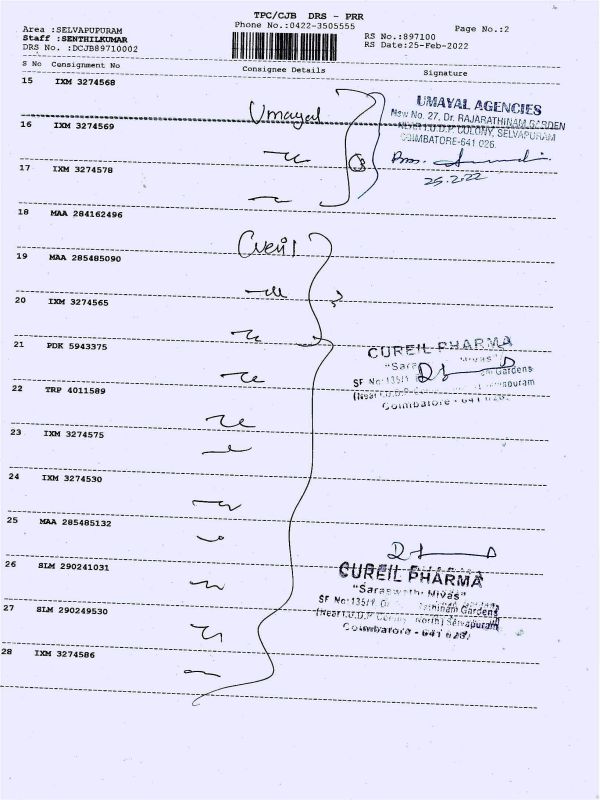 TPC/CJB DRS - PRR
Area :SELVAPUPURAM Phone No.:0422-3505555 Page No.:2
Staff :SENTHILKUMAR RS No.:897100
DRS No. :DCJB89710002 RS Date:25-Feb-2022
S No Consignment No Consignee Details Signature
15 IXM 3274568 Umayal
UMAYAL AGENCIES
New No. 27, Dr. RAJARATHINAM GARDEN
NEAR I.U.D.P. COLONY, SELVAPURAM
COIMBATORE-641 026.
16 IXM 3274569
17 IXM 3274578
25.2.22
18 MAA 284162496
Cureil
19 MAA 285485090
20 IXM 3274565
21 PDK 5943375
CUREIL PHARMA
"Saras Nivas"
SF No:135/1 Gardens
(Near I.U.D.P.
Coimbatore - 641 026.
22 TRP 4011589
23 IXM 3274575
24 IXM 3274530
25 MAA 285485132
26 SLM 290241031
CUREIL PHARMA
"Saraswathi Nivas"
SF No:135/1 Gardens
(Near I.U.D.P. Colony North) Selvapuram
Coimbatore - 641 026.
27 SLM 290249530
28 IXM 3274586